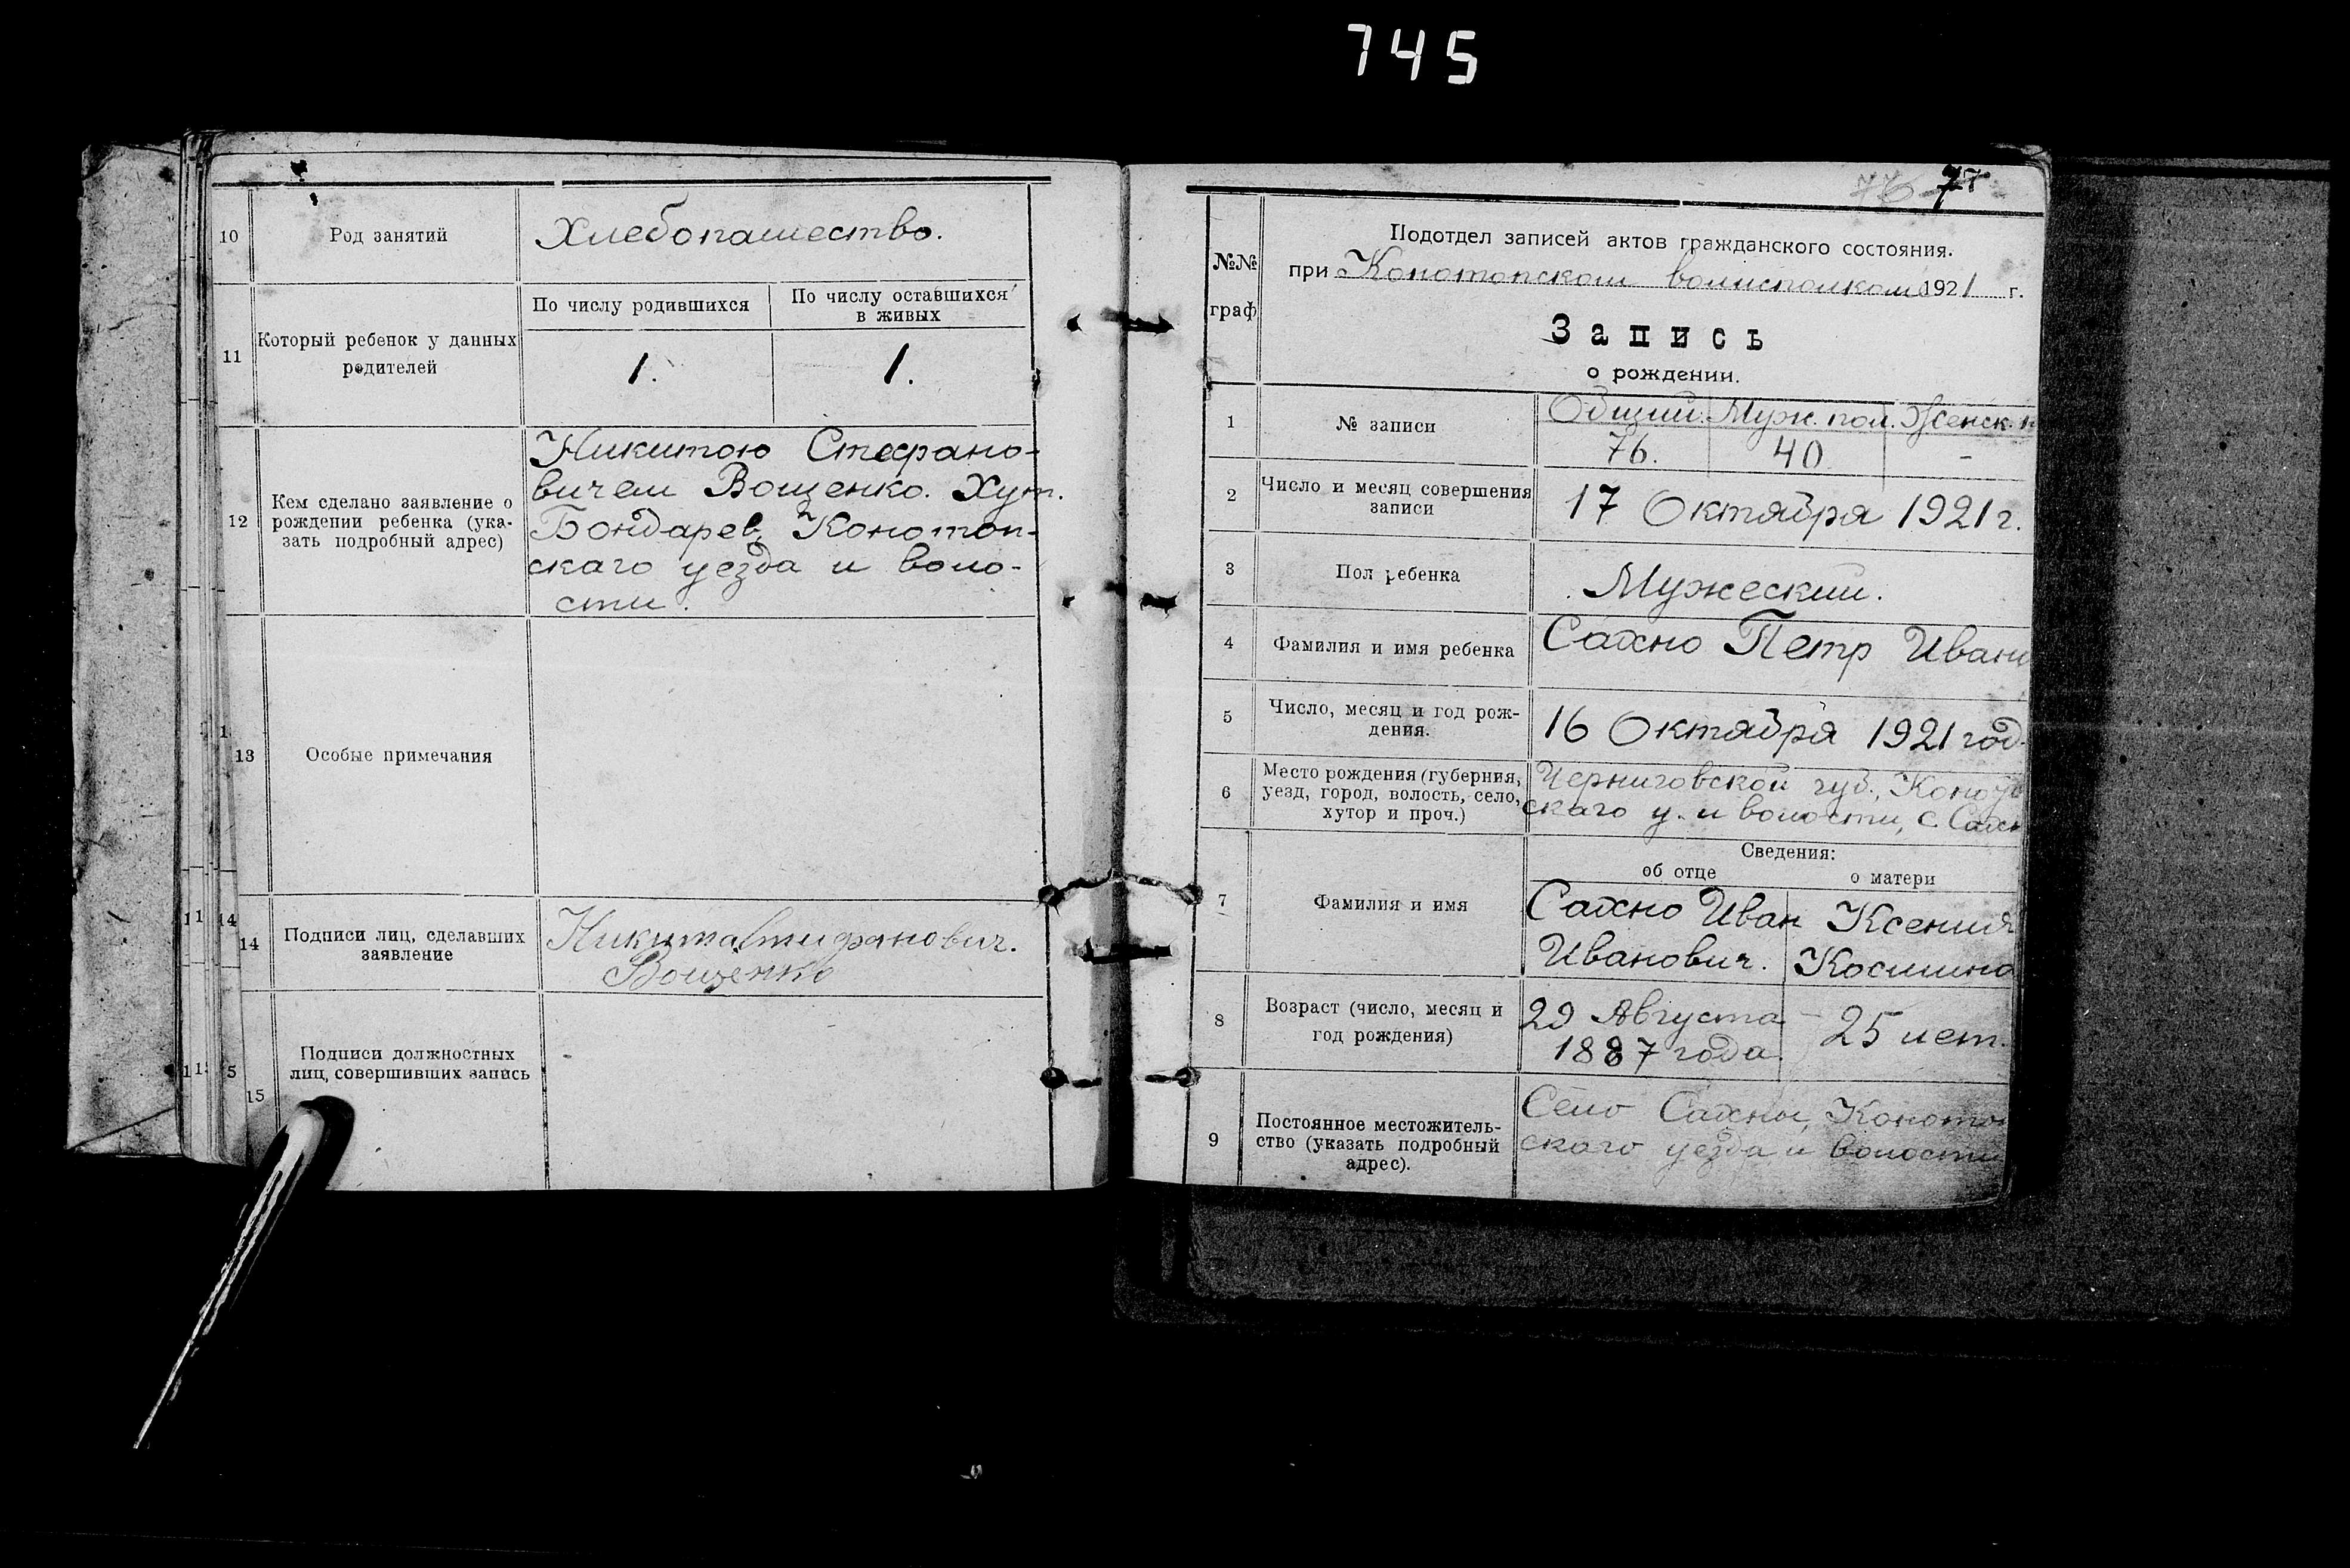 745
10
Род занятий
Хлебопашество.
11
Который ребенок у данных
родителей
По числу родившихся
По числу оставшихся
в живых
1.
1.
12
Кем сделано заявление о
рождении ребенка (ука-
зать подробный адрес)
Никитою Стефано-
вичем Вощенко. Хут.
Бондарев, Конотоп-
скаго уезда и воло-
сти.
13
Особые примечания
14
Подписи лиц, сделавших
заявление
Никита Стифанович.
Вощенко
15
Подписи должностных
лиц, совершивших запись
76 77
№№
граф
Подотдел записей актов гражданского состояния.
при Конотопском волисполкоме 1921 г.
Запись
о рождении.
1
№ записи
Общий. Муж. пол. Женск. п
76. 40 -
2
Число и месяц совершения
записи
17 Октября 1921 г.
3
Пол ребенка
Мужеский.
4
Фамилия и имя ребенка
Сахно Петр Ивано
5
Число, месяц и год рож-
дения.
16 Октября 1921 год.
6
Место рождения (губерния,
уезд, город, волость, село,
хутор и проч.)
Черниговской губ.,
скаго у. и волости, с. Сахн
Сведения:
об отце
о матери
7
Фамилия и имя
Сахно Иван
Иванович.
Ксения
Космина
8
Возраст (число, месяц и
год рождения)
29 Августа
1887 года.
25 лет.
9
Постоянное местожитель-
ство (указать подробный
адрес).
Село Сахны, Коното
скаго уезда и волости